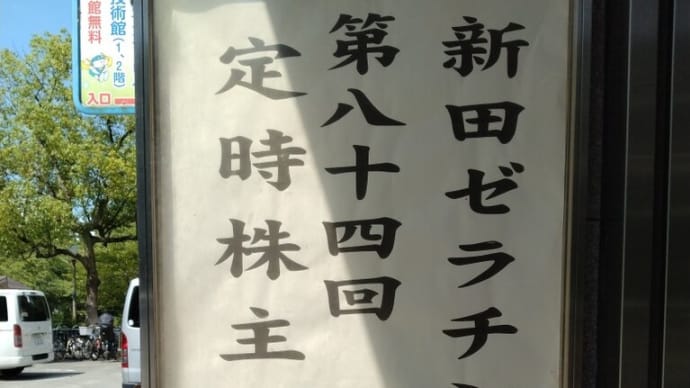 新田ゼラチ
第八十四回
定時株主
技術館(1、2階)
館無料
入口